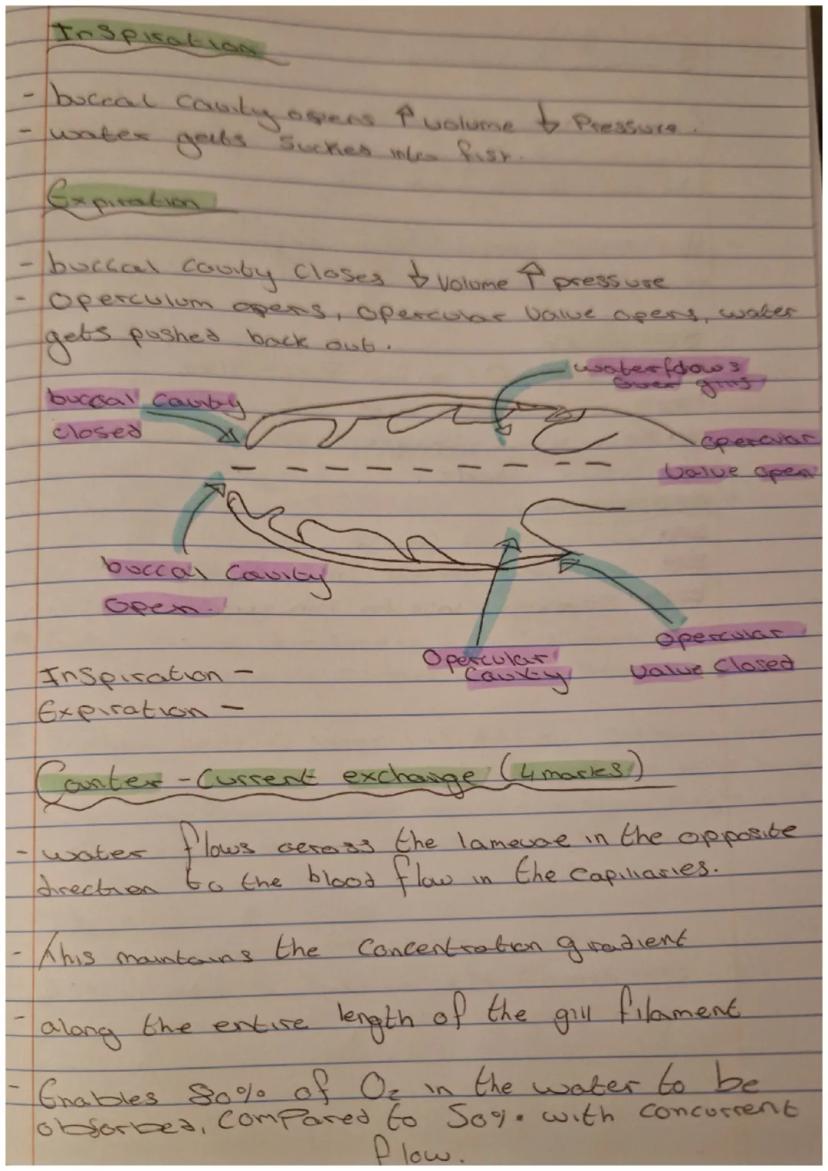 Inspiration
- buccal cavity opens ↑ volume ↓ Pressure.
- water gets sucked into fish.
Expiration
- buccal cavity closes ↓ volume ↑ pressure
- Operculum opens, opercular valve opens, water
gets pushed back out.
waterflows
over gills
buccal cavity
closed
opercular
valve open
buccal cavity
open.
Opercular
cavity
opercular
valve closed
Inspiration -
Expiration -
Counter - current exchange (4 marks)
- water flows across the lamellae in the opposite
direction to the blood flow in the capillaries.
- This maintains the concentration gradient
- along the entire length of the gill filament
- Enables 80% of O₂ in the water to be
absorbed, compared to 50% with concurrent
flow.